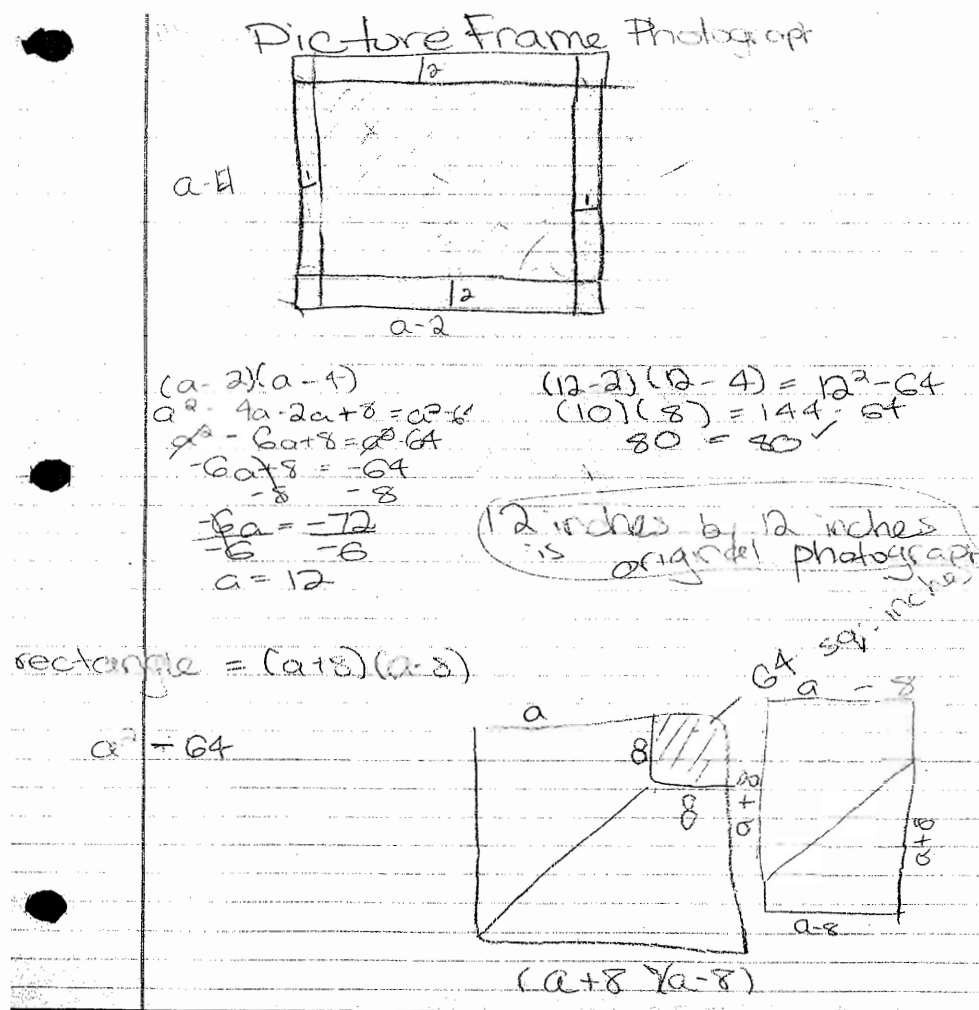 Picture Frame Photograph
2
a-4
1
1
2
a-2
(a-2)(a-4)
a² - 4a-2a+8 = a²-64
a² - 6a+8 = a²-64
-6a+8 = -64
-8 -8
-6a = -72
-6 -6
a = 12
(12-2)(12-4) = 12²-64
(10)(8) = 144-64
80 = 80 ✓
12 inches by 12 inches
is original photograph
rectangle = (a+8)(a-8)
a² - 64
64 sq. inches
a
8
8
a+8
a - 8
a+8
a-8
(a+8)(a-8)